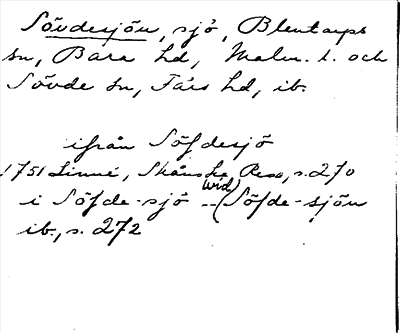 Sövdesjön, sjö, Blentarps
sn, Bara hd, Malm. l. och
Sövde sn, Färs hd, ib.
ifrån Söfdesjö
1751 Linné, Skånska Resa, s. 270
i Söfde-sjö -- (wid) Söfde-sjön
ib., s. 272